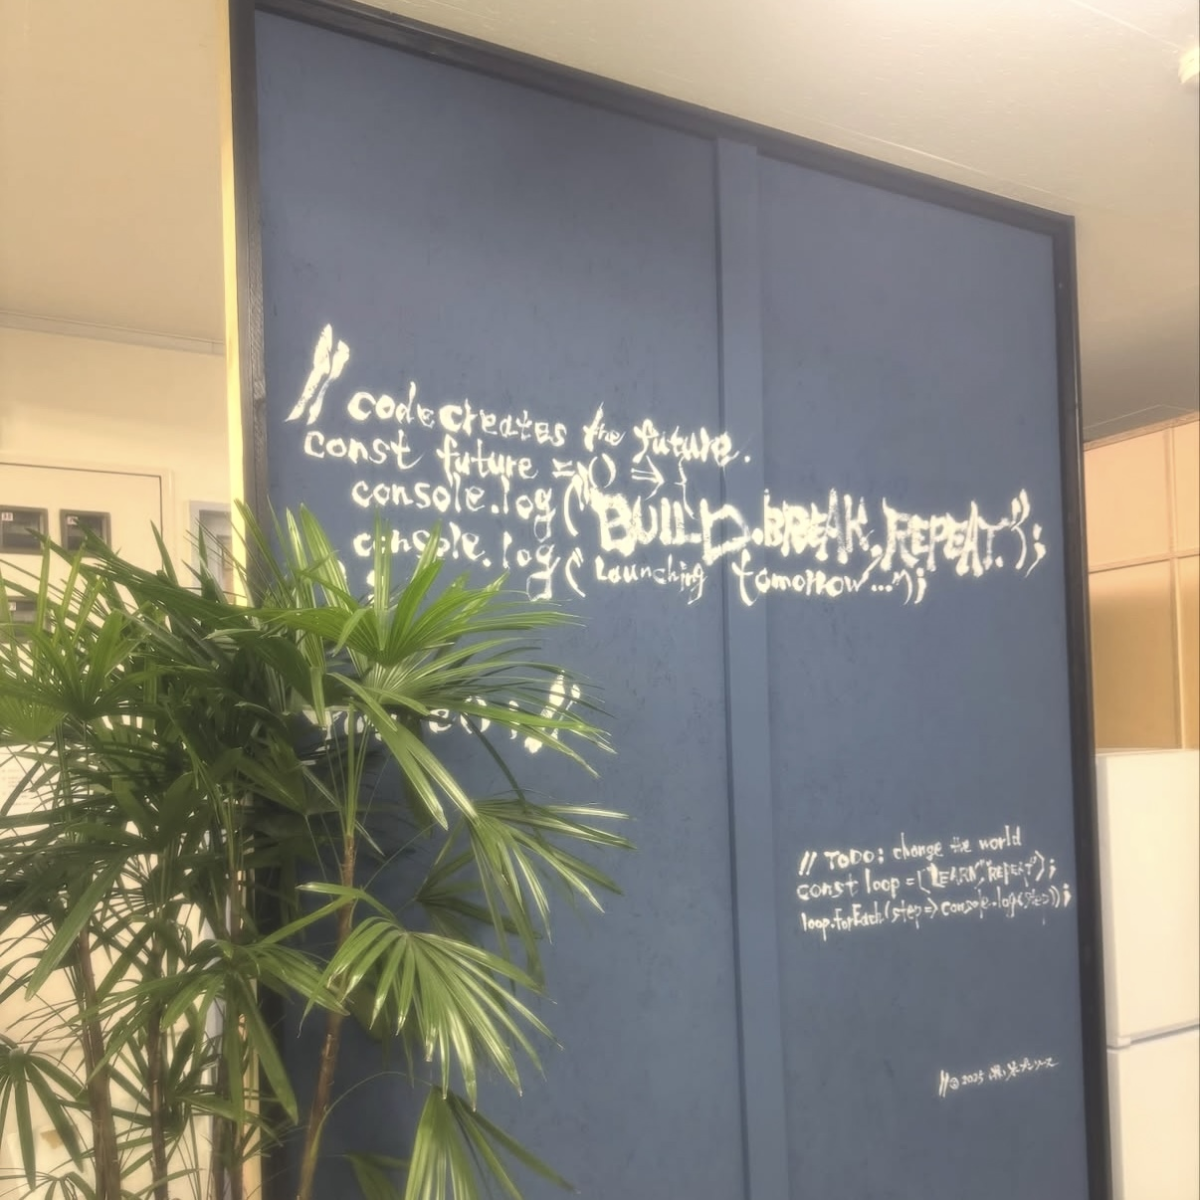 // code creates the future.
const future = () => {
console.log("BUILD.BREAK.REPEAT.");
console.log("Launching tomorrow...");
// TODO: change the world
const loop = ["LEARN","REPEAT"];
loop.forEach(step=>console.log(step));
//© 2025